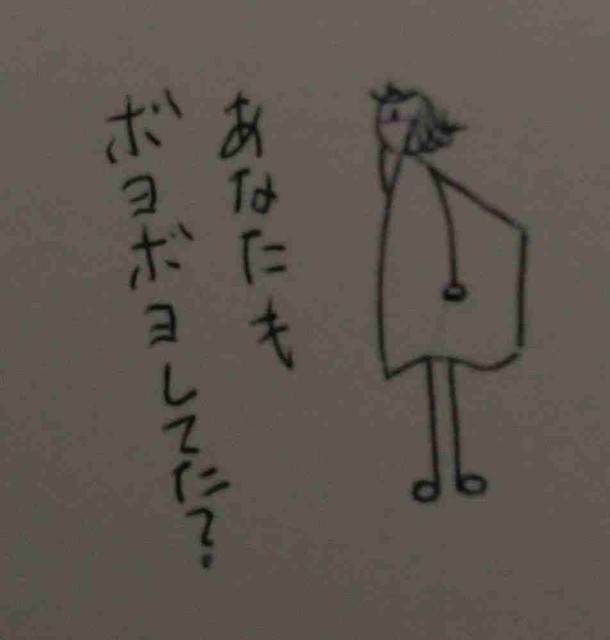 あなたも
ボヨボヨしてた?